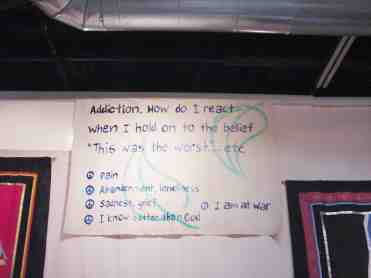 Addiction. How do I react
when I hold on to the belief
"This was the worst... etc
Pain
Abandonment, loneliness
Sadness, grief
I am at war
I know better than God